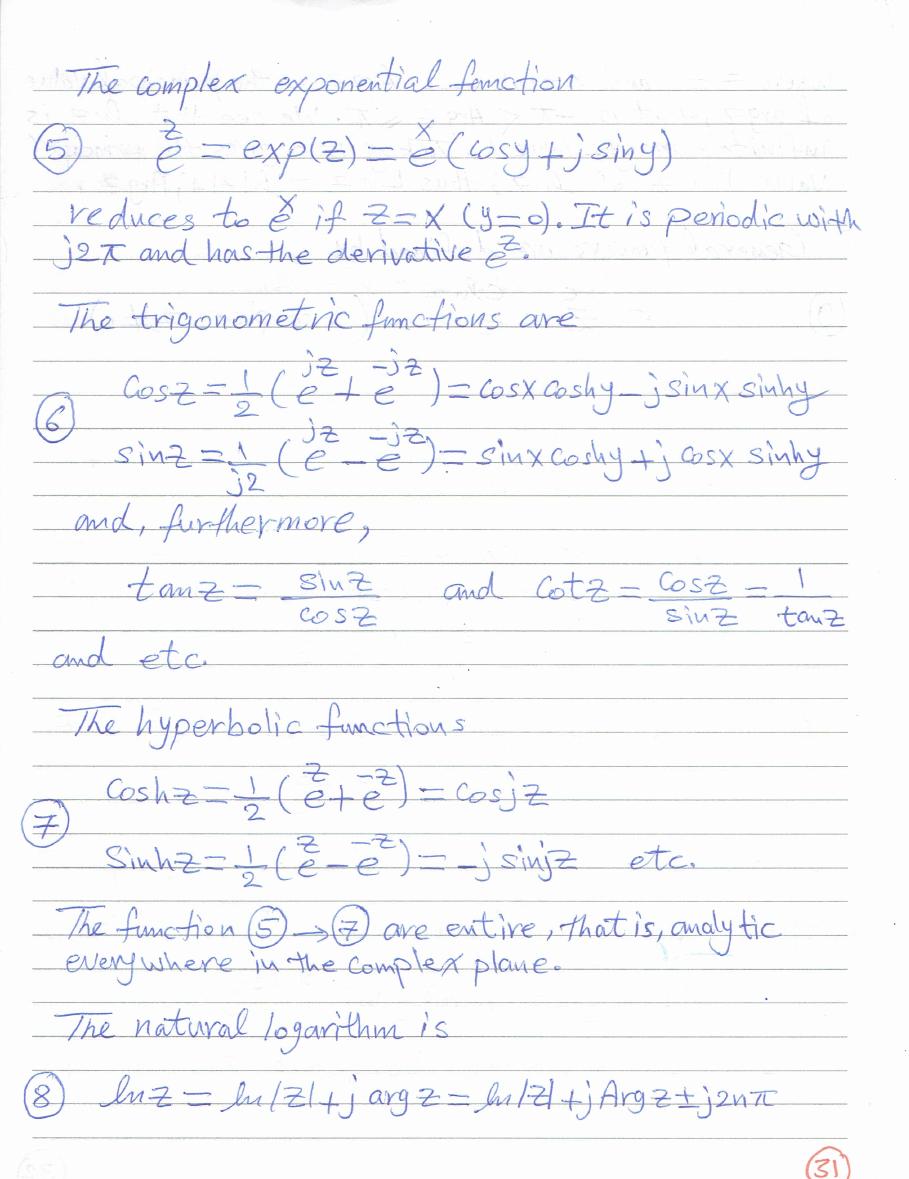 The complex exponential function
⑤ e^z = exp(z) = e^x (cosy + j siny)
reduces to e^x if z = x (y=0). It is periodic with
j2π and has the derivative e^z.
The trigonometric functions are
Cosz = 1/2 (e^jz + e^-jz) = cosx coshy - j sinx sinhy
⑥
sinz = 1/j2 (e^jz - e^-jz) = sinx coshy + j cosx sinhy
and, furthermore,
tanz = sinz/cosz and Cotz = Cosz/sinz = 1/tanz
and etc.
The hyperbolic functions
Coshz = 1/2 (e^z + e^-z) = Cosjz
⑦
Sinhz = 1/2 (e^z - e^-z) = -j sinjz etc.
The function ⑤ → ⑦ are entire, that is, analytic
everywhere in the complex plane.
The natural logarithm is
⑧ lnz = ln|z| + j arg z = ln|z| + j Arg z ± j2nπ
31